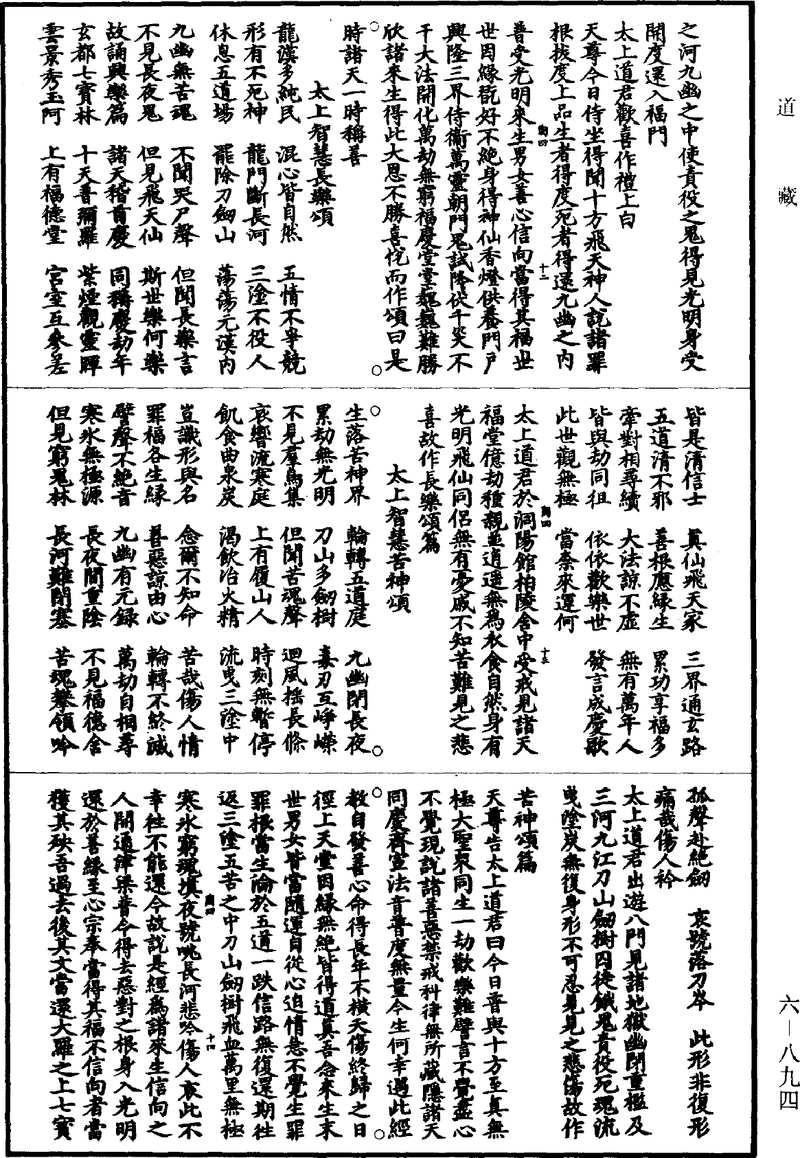 道藏
之河九幽之中使責役之鬼得見光明身受
開度還入福門
太上道君歡喜作禮上白
天尊今日侍坐得聞十方飛天神人說諸罪
根拔度上品生者得度死者得還九幽之內
善受光明來生男女善心信向當得其福世
世因緣皆好不絕身得神仙香燈供養門戶
興隆三界侍衞萬靈朝門鬼試降伏千災不
干大法開化萬劫無窮福慶堂堂巍巍難勝
欣諾來生得此大恩不勝喜悅而作頌曰是
時諸天一時稱善
太上智慧長樂頌
龍漢多純民 混心皆自然 五情不爭競
形有不死神 龍門斷長河 三塗不役人
休息五道場 罷除刀劒山 蕩蕩元漢內
九幽無苦魂 不聞哭尸聲 但聞長樂言
不見長夜鬼 但見飛天仙 斯世樂何樂
故誦興樂篇 諸天稽首慶 同稱慶劫年
玄都七寶林 十天普彌羅 紫煙觀靈暉
雲景秀玉阿 上有福德堂 宮室互參差
皆是清信士 真仙飛天家 三界通玄路
五道清不邪 善根應緣生 累功享福多
牽對相尋續 大法諒不虛 無有萬年人
皆與劫同徂 依依歡樂世 發言成慶歌
此世觀無極 當奈來運何
太上道君於洞陽館柏陵舍中受戒見諸天
福堂億劫種親並逍遥無爲衣食自然身有
光明飛仙同侶無有憂戚不知苦難見之悲
喜故作長樂頌篇
太上智慧苦神頌
生落苦神界 輪轉五道庭 九幽閉長夜
累劫無光明 刀山多劒樹 毒刃互崢嶸
不見羣鳥集 但聞苦魂聲 迴風揺長條
哀響流寒庭 上有履山人 時刻無暫停
飢食曲泉炭 渴飲冶火精 流曳三塗中
豈識形與名 念爾不知命 苦哉傷人情
罪福各生緣 善惡諒由心 輪轉不終滅
譬聲不絕音 九幽有元錄 萬劫自相尋
寒氷無極源 長夜閒重陰 不見福德舍
但見窮鬼林 長河難閉塞 苦魂攀領吟
孤聲赴絕劒 哀號落刀岑 此形非復形
痛哉傷人衿
太上道君出遊八門見諸地獄幽閉重檻及
三河九江刀山劒樹囚徒餓鬼責役死魂流
曳塗炭無復身形不可忍見見之悲傷故作
苦神頌篇
天尊告太上道君曰今日音與十方至真無
極大聖衆同生一劫歡樂難譬言不覺盡心
不覺現說諸善惡禁戒科律無所藏隱諸天
同慶齊宣法音普度無量今生何幸遇此經
教自發善心命得長年不橫夭傷終歸之日
徑上天堂因緣無絕皆得道真吾念來生末
世男女皆當隨運自從心迫情急不覺生罪
罪根當生淪於五道一跌信路無復還期往
返三塗五苦之中刀山劒樹飛血萬里無極
寒氷窮魂塡夜號咷長河悲吟傷人哀此不
幸往不能還今故說是經爲諸來生信向之
人開通律梁普令得去惡對之根身入光明
還於善緣至心宗奉當得其福不信向者當
獲其殃吾過去後其文當還大羅之上七寶
六－八九四